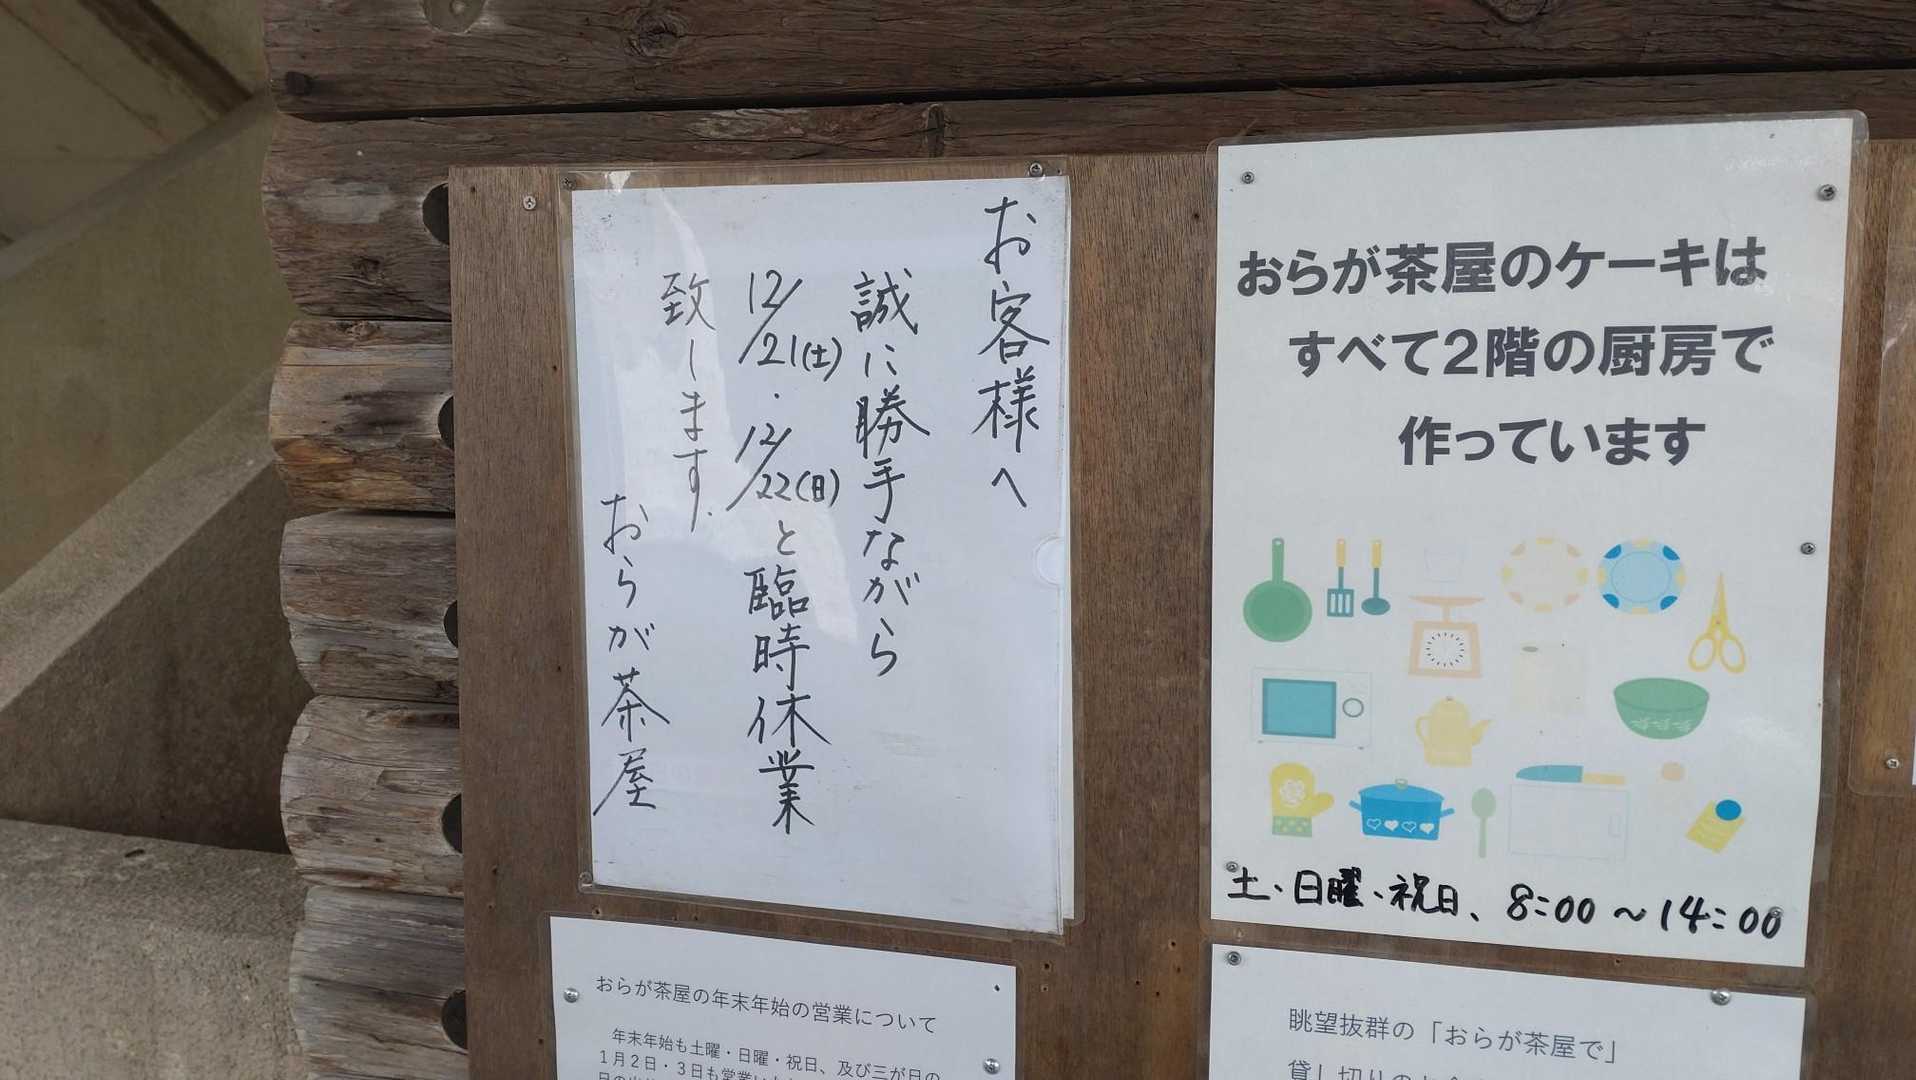 お客様へ
誠に勝手ながら
12/21(土)・12/22(日)と臨時休業
致します.
おらが茶屋
おらが茶屋のケーキは
すべて2階の厨房で
作っています
土・日曜・祝日、8:00～14:00
おらが茶屋の年末年始の営業について
年末年始も土曜・日曜・祝日、及び三が日の
1月2日・3日も営業い
眺望抜群の「おらが茶屋で」
貸し切りの